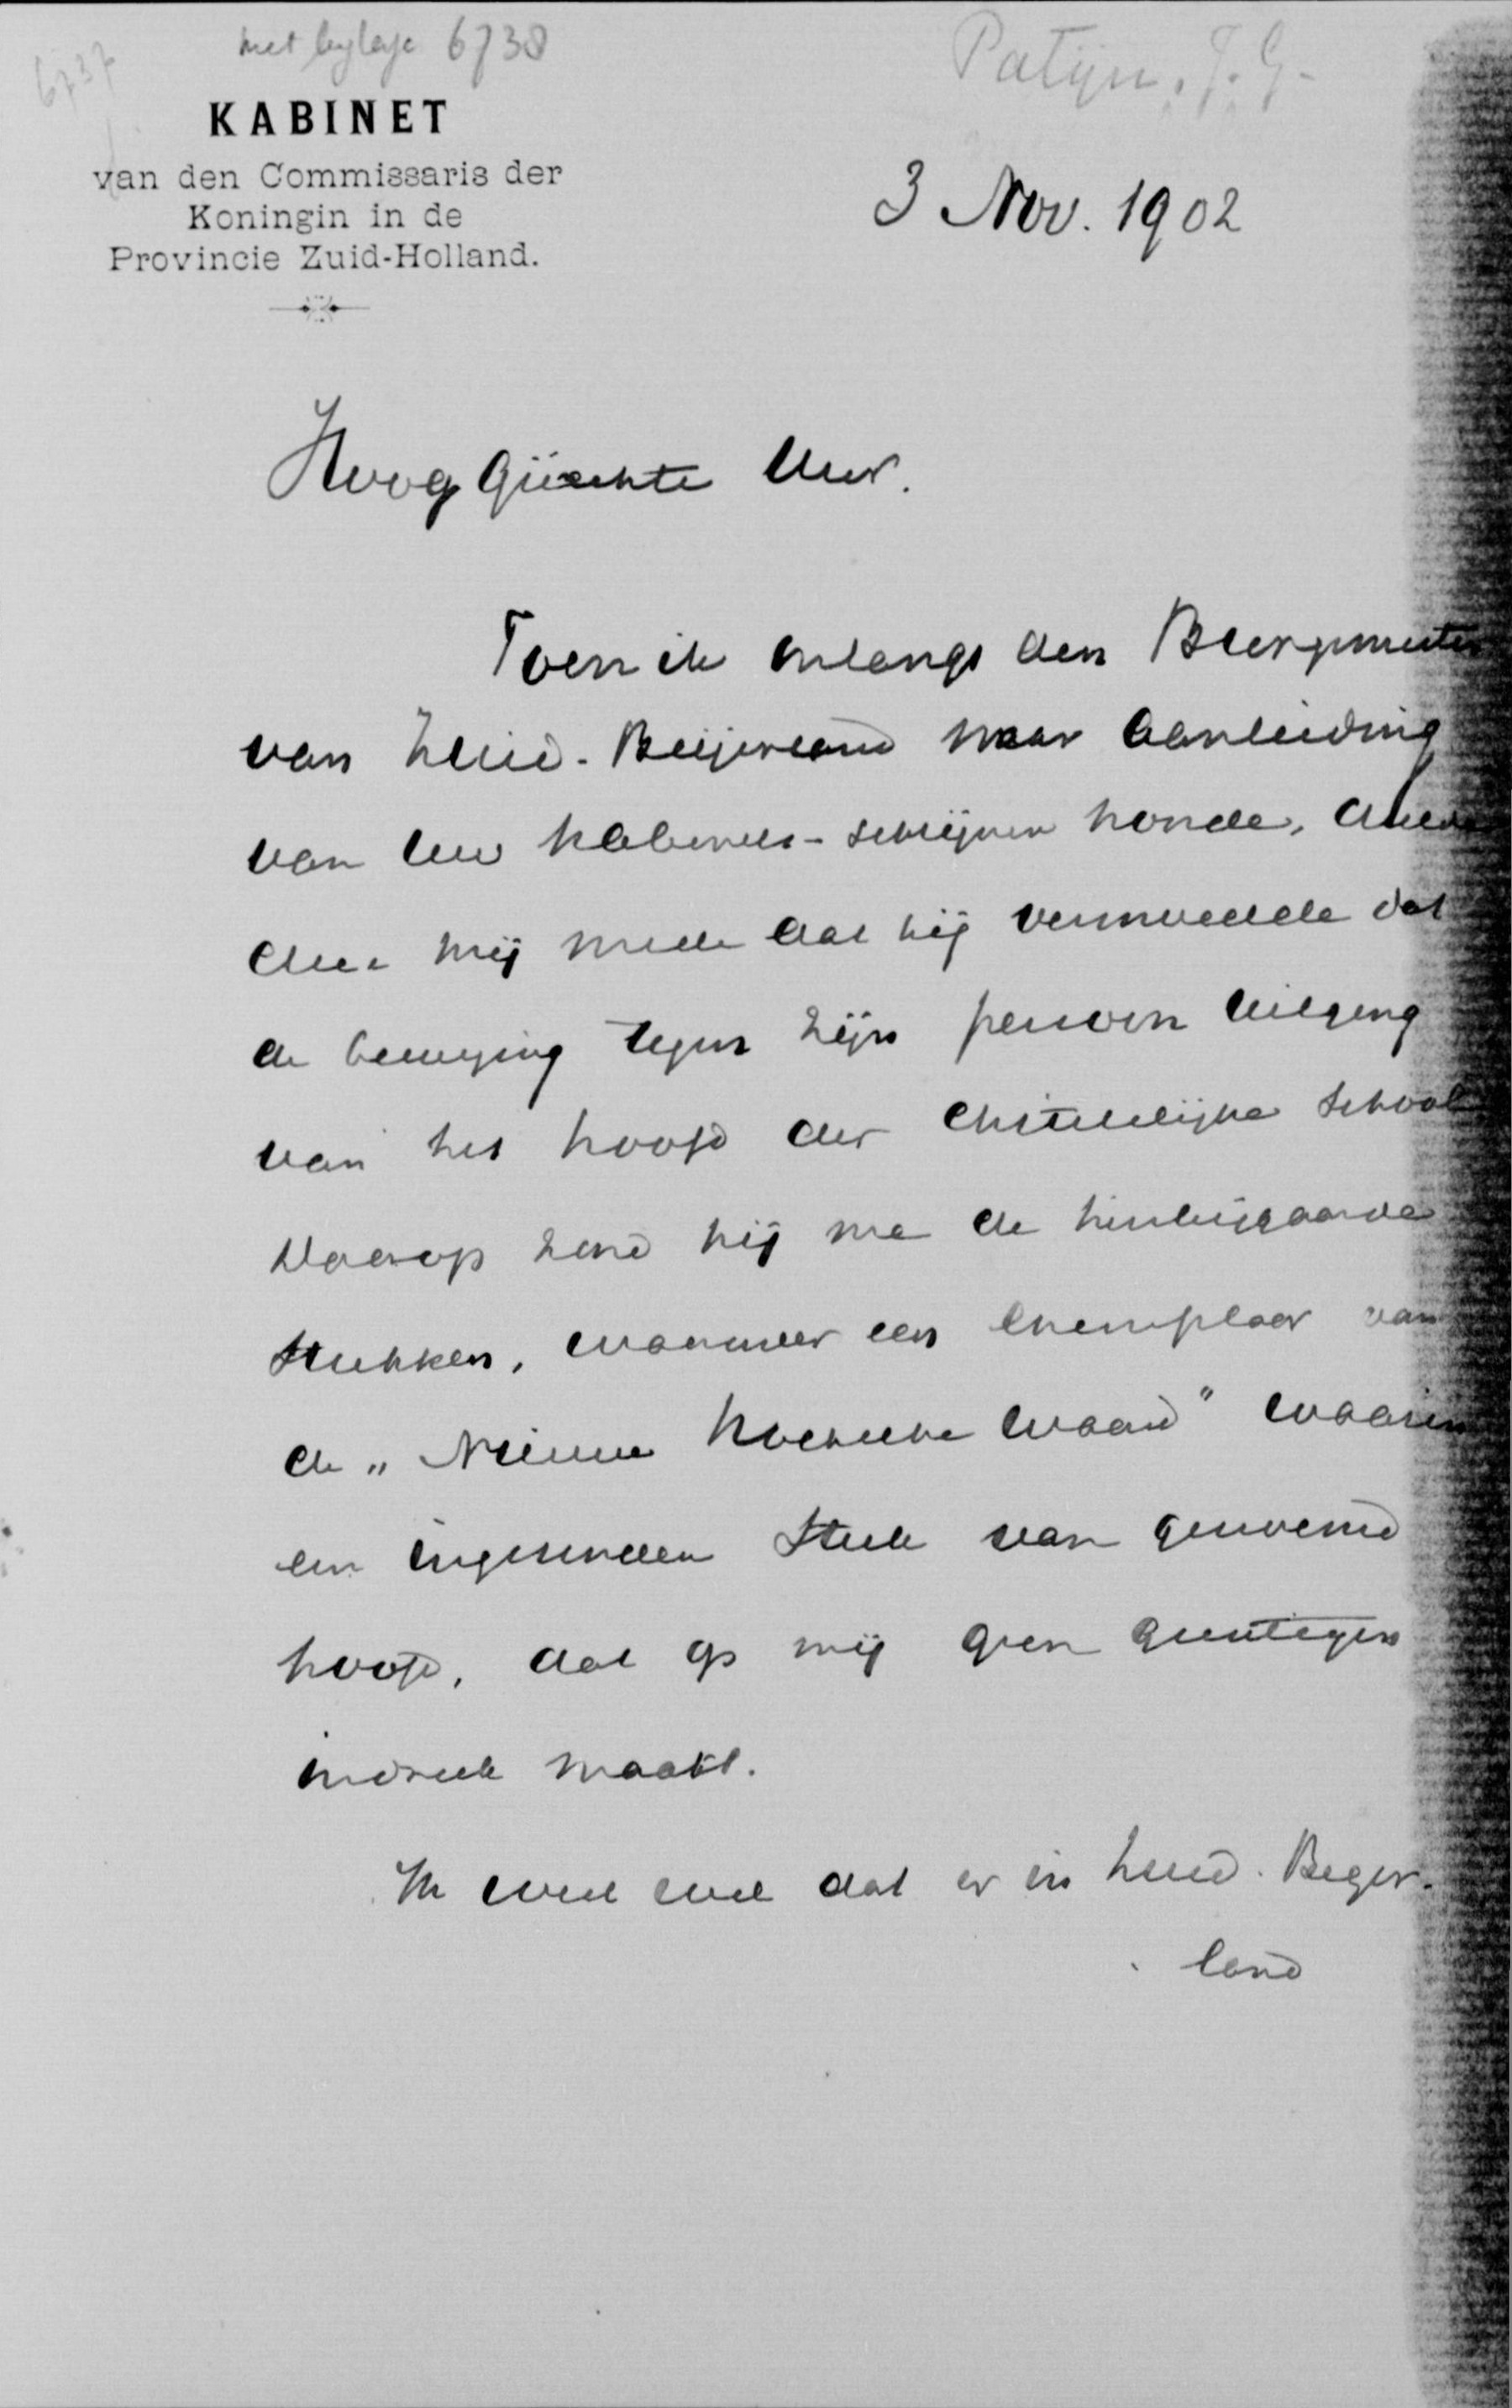 6737
met bijlage 6738
Patijn, J. G.
KABINET
van den Commissaris der
Koningin in de
Provincie Zuid-Holland.
3 Nov. 1902
Hoog Geachte Heer.
Toen ik onlangs den Burgemeester
van Zuid-Beijerland naar aanleiding
van Uw Kabinets-schrijven hoorde, deelde
deze mij mede dat hij vermoedde dat
de beweging tegen zijn persoon uitging
van het hoofd der Christelijke School
Daarop zond hij me de hierbijgaande
stukken, waaronder een exemplaar van
de „Nieuwe Hoeksche Waard" waarin
een ingezonden stuk van genoemd
hoofd, dat op mij geen gunstigen
indruk maakt.
Ik weet wel dat er in Zuid-Beijer-
land